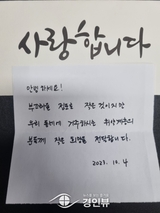 사랑합니다
안녕하세요!
부족하나마 정성을 담은 것이지만
우리 동네에 거주하시는 취약계층의
분들께 작은 희망을 전합니다.
2023. 10. 4
경인뷰